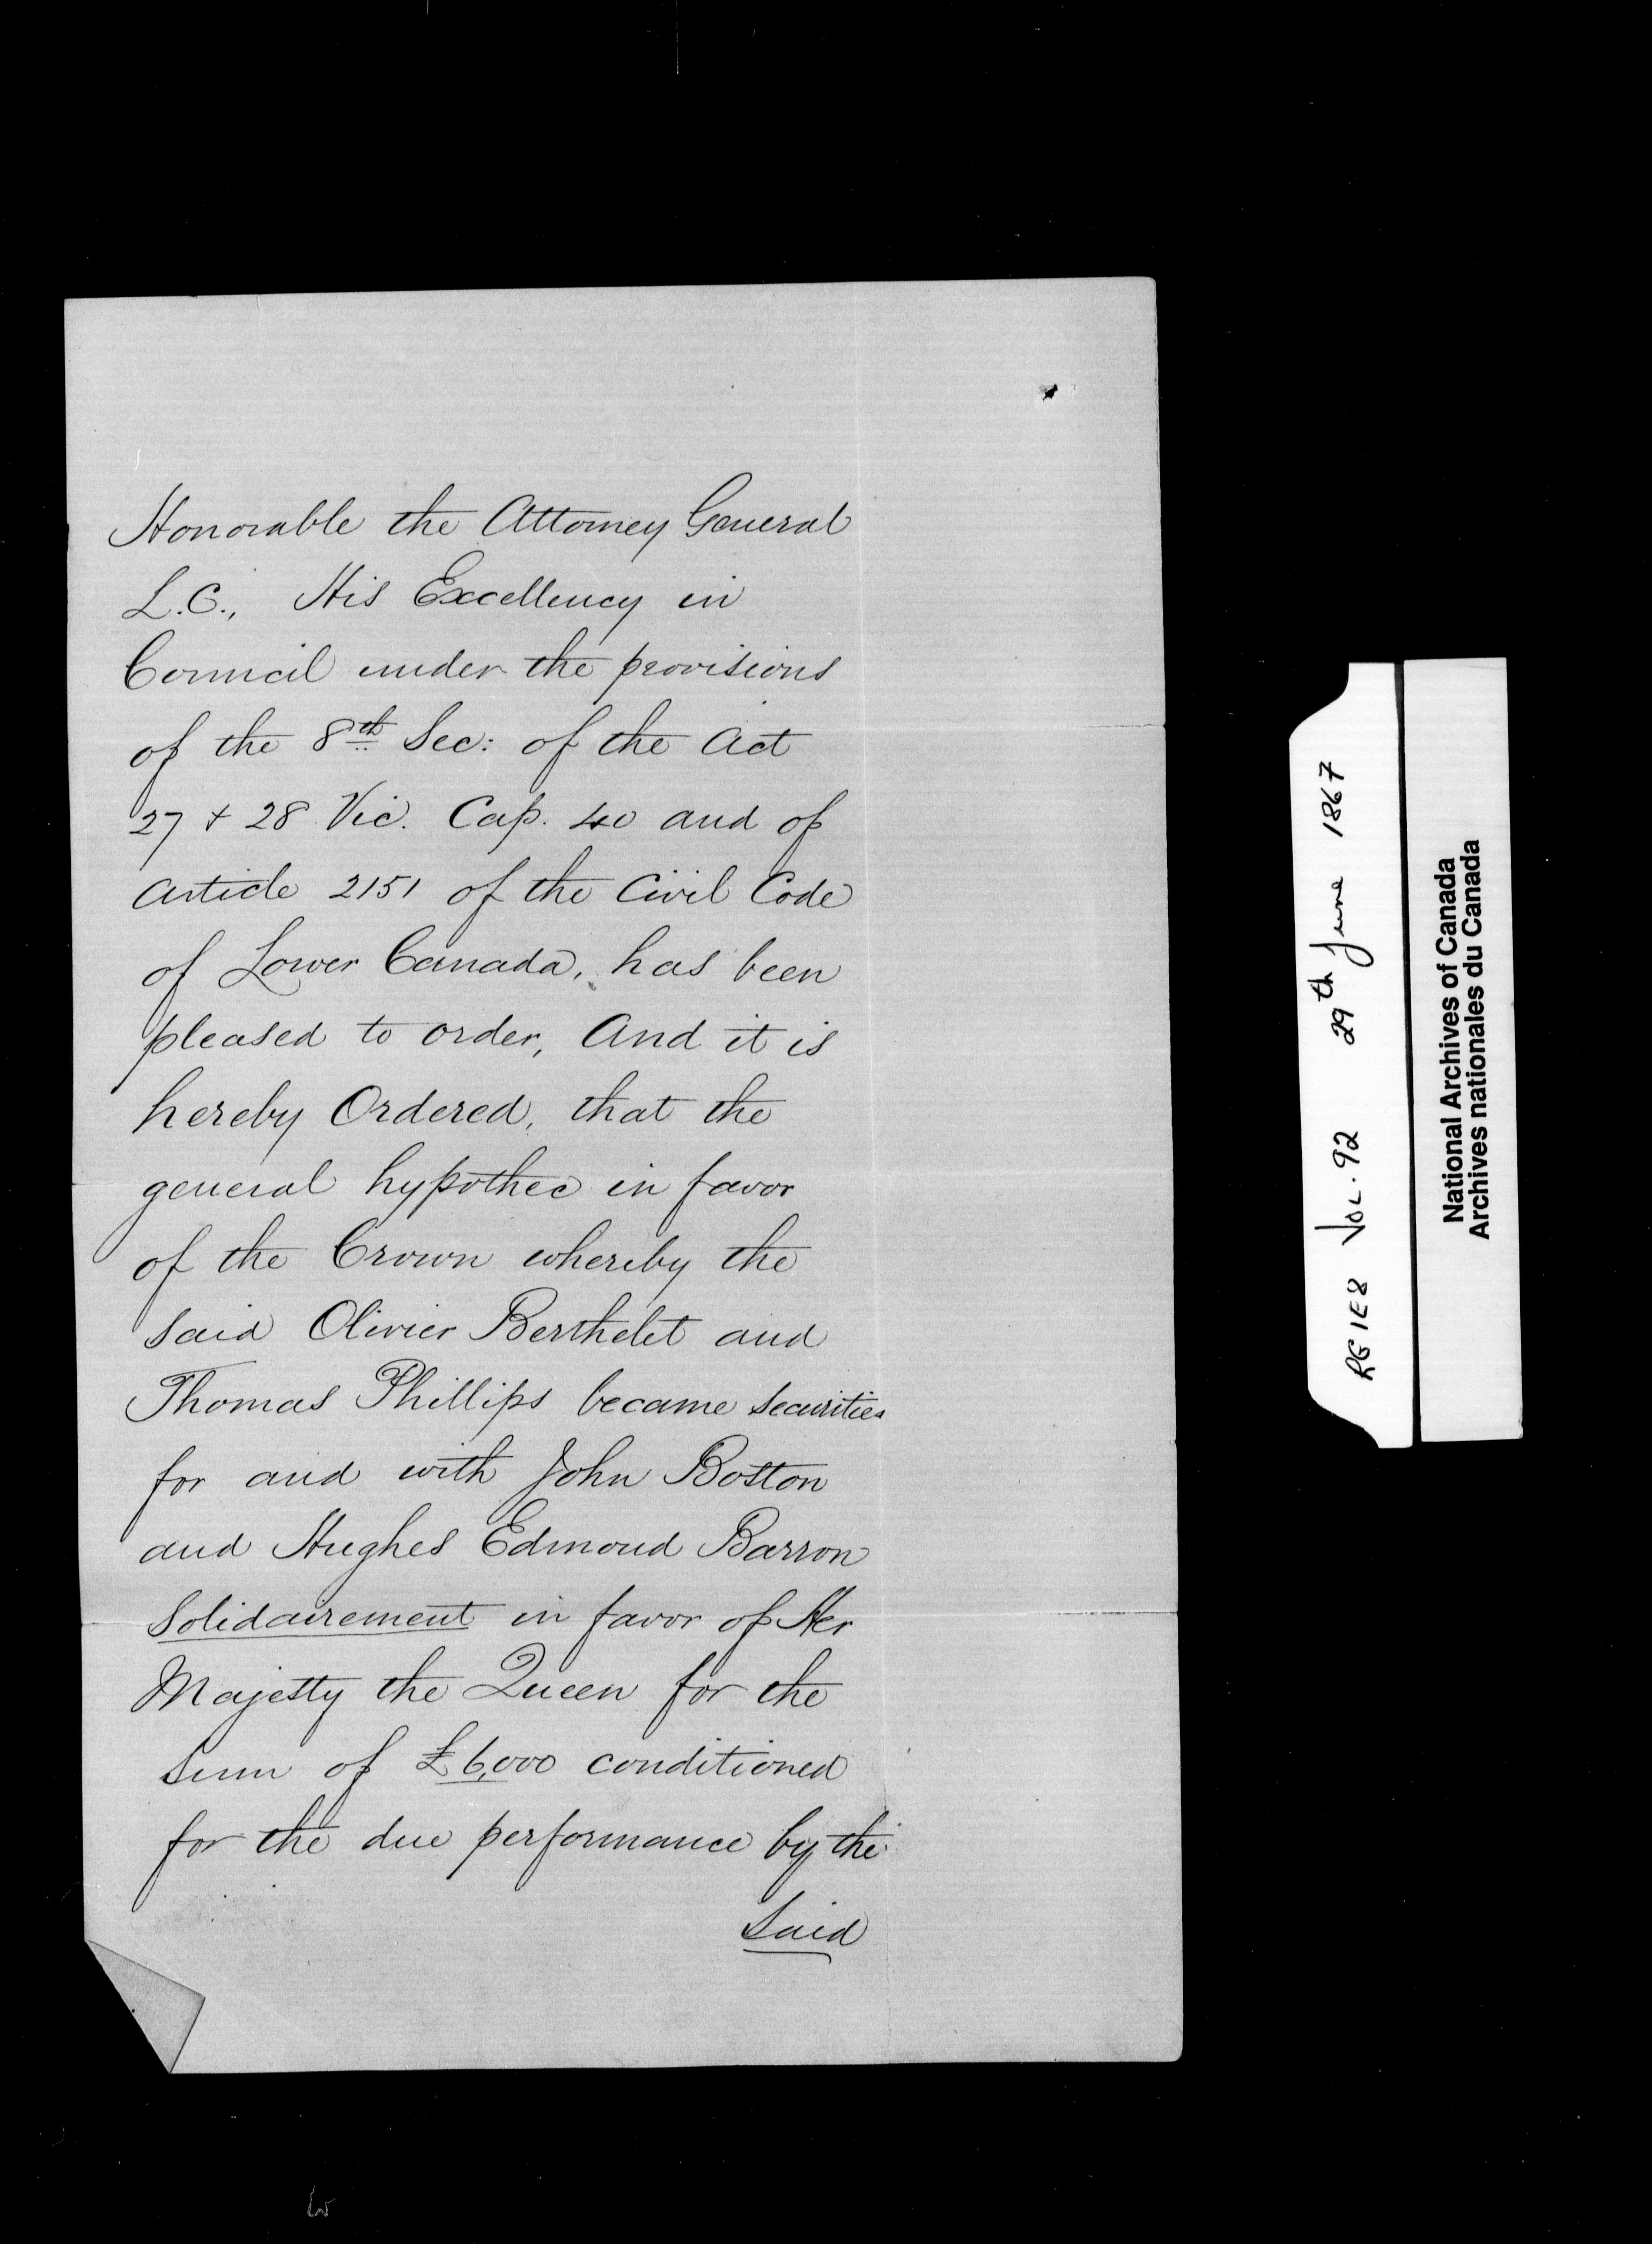 Honorable the Attorney General
L.C., His Excellency in
Council under the provisions
of the 8th Sec: of the Act
27 + 28 Vic. Cap. 40 and of
Article 2151 of the Civil Code
of Lower Canada, has been
pleased to order, And it is
hereby Ordered, that the
general hypothec in favor
of the Crown whereby the
said Olivier Berthelet and
Thomas Phillips became securities
for and with John Boston
and Hughes Edmond Barron
Solidairement in favor of Her
Majesty the Queen for the
sum of £6,000 conditioned
for the due performance by the
Said
RG 1E8 VOL. 92 29th June 1867
National Archives of Canada
Archives nationales du Canada